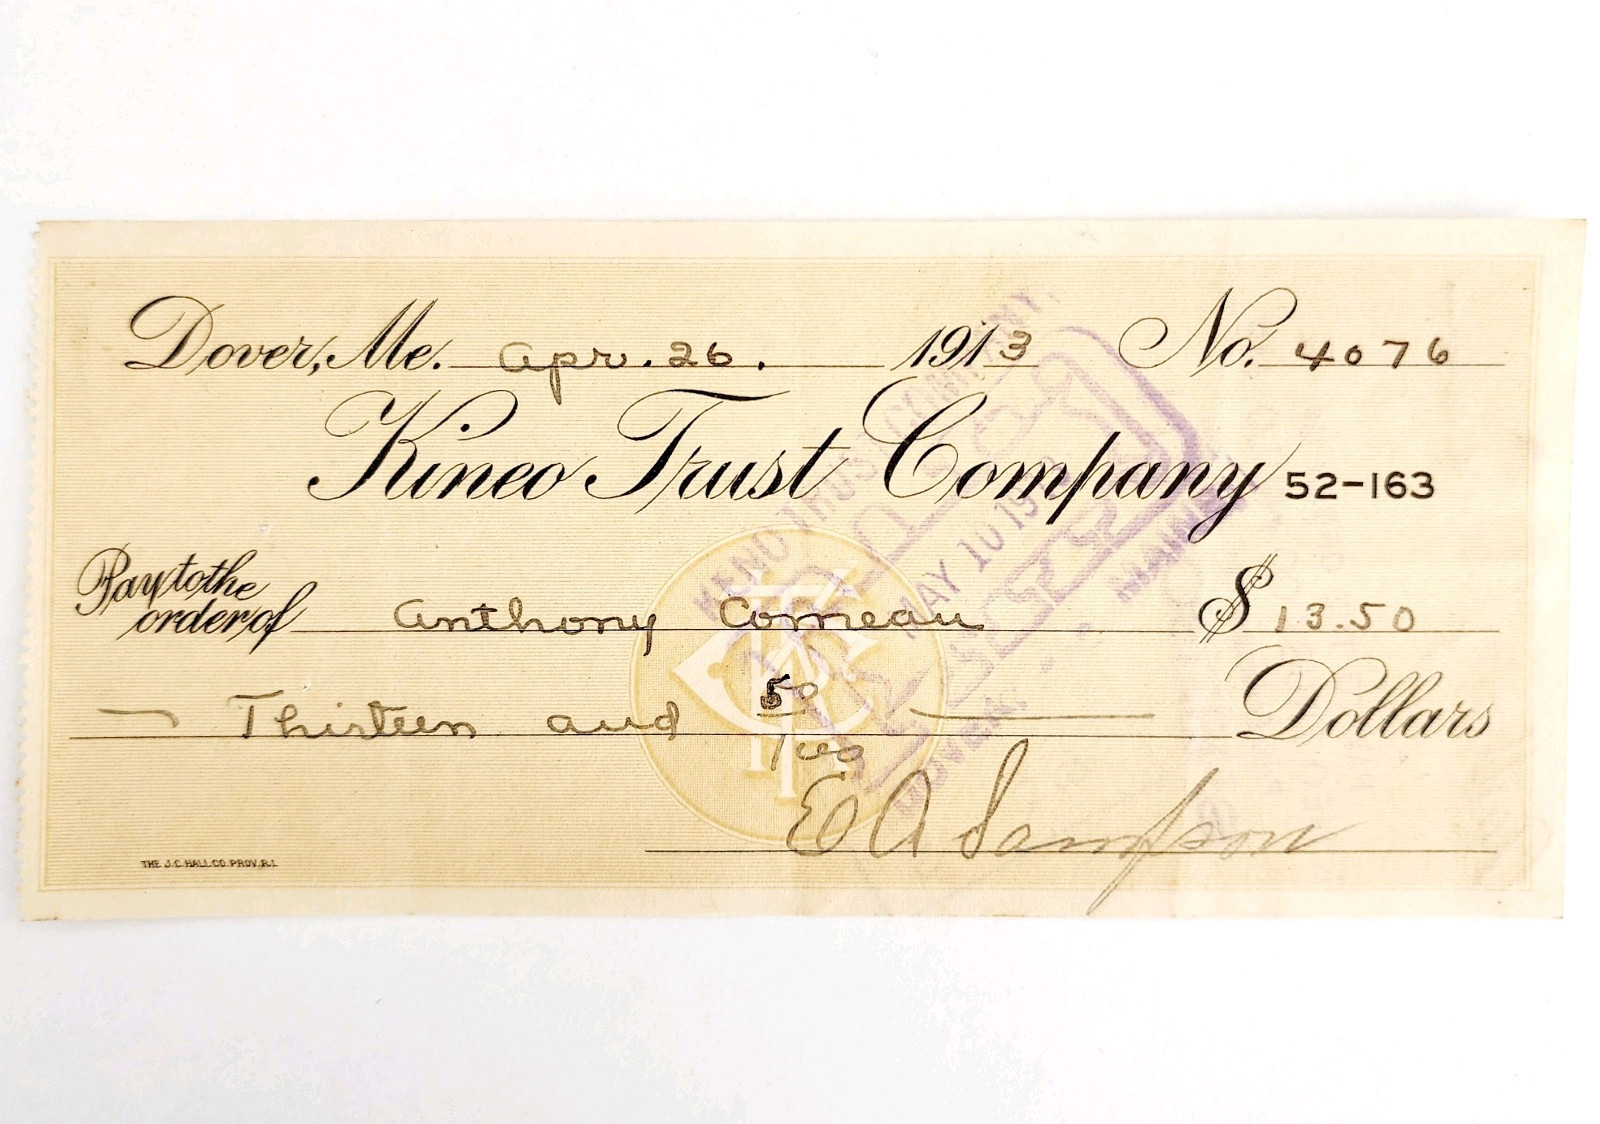 Dover, Me. Apr. 26. 1913 No. 4076
Kineo Trust Company 52-163
Pay to the
order of Anthony Comeau $ 13.50
Thirteen and 50/100 Dollars
E A Sampson
THE J.C. HALL CO. PROV. R.I.
KINEO TRUST COMPANY,
PAID
MAY 10 19
DOVER, MAINE